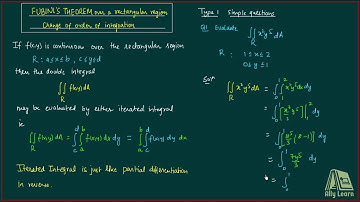 FUBINI'S THEOREM over a rectangular region
Change of order of integration
If f(x,y) is continuous over the rectangular region
R : a≤x≤b , c≤y≤d
then the double integral
∬ f(x,y) dA
R
may be evaluated by either iterated integral
ie ∬ f(x,y) dA = ∫ᶜᵈ ∫ₐᵇ f(x,y) dx dy = ∫ₐᵇ ∫ᶜᵈ f(x,y) dy dx
R
Iterated Integral is just like partial differentiation
in reverse.
Type 1 Simple questions
Q1 Evaluate ∬ x²y⁵ dA
R
R : 1≤x≤2
0≤y≤1
Solⁿ ∬ x²y⁵ dA = ∫₀¹ ∫₁² x²y⁵ dx dy
R
= ∫₀¹ [x³/3 y⁵]₁² dy
= ∫₀¹ y⁵/3 (8-1) dy
= ∫₀¹ 7y⁵/3 dy
= ∫₀¹
Ally Learn